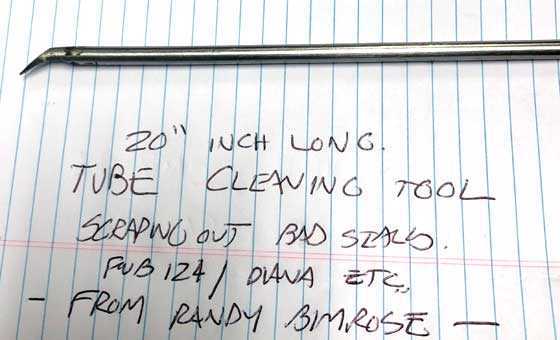 20" INCH LONG.
TUBE CLEANING TOOL
SCRAPING OUT BAD SEALS.
FWB 124 / DIANA ETC.
- FROM RANDY BIMROSE -